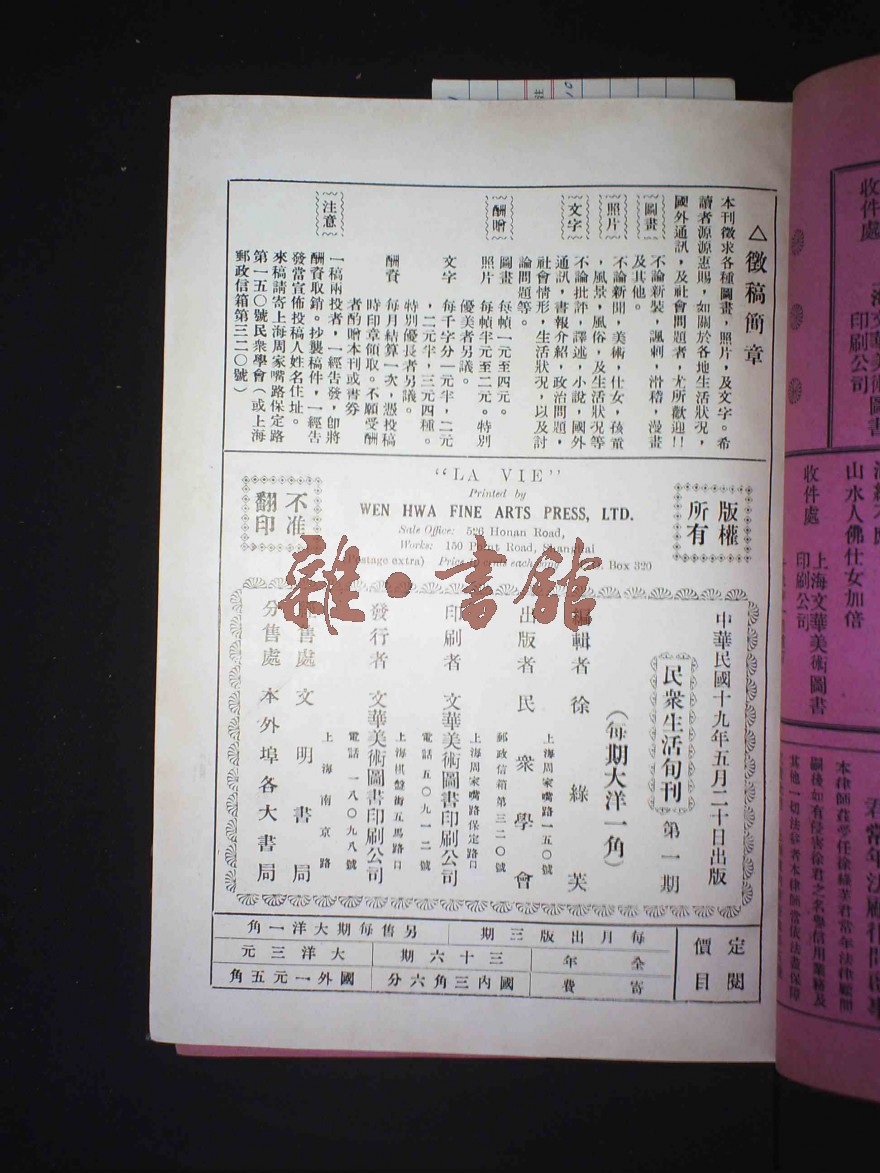 △徵稿簡章
本刊徵求各種圖畫，照片，及文字。希
讀者源源惠賜，如關於各地生活狀況，
國外通訊，及社會問題者，尤所歡迎!!
圖畫 不論新裝 諷刺，滑稽，漫畫
及其他。
照片 不論新聞，美術，仕女，孩童
，風景，風俗，及生活狀況等
文字 不論批評，譯述，小說，國外
通訊，書報介紹，政治問題，
社會情形，生活狀況，以及討
論問題等。
酬贈 圖畫 每幀一元至四元。
照片 每幀半元至二元。特別
優美者另議。
文字 每千字分一元半，二元
，二元半，三元四種。
特別優長者另議。
酬資 每月結算一次，憑投稿
時印章領取。不願受酬
者酌贈本刊或書券
注意 一稿兩投者，一經告發，卽將
酬資取銷。抄襲稿件，一經告
發當宣佈投稿人姓名住址。
來稿請寄上海周家嘴路保定路
第一五〇號民衆學會（或上海
郵政信箱第三二〇號）
版權所有
"LA VIE"
Printed by
WEN HWA FINE ARTS PRESS, LTD.
Sale Office: 526 Honan Road,
Works: 150 Point Road, Shanghai
(Postage extra) Price 10 cents each Box 320
不准翻印
雜·書館
中華民國十九年五月二十日出版
民衆生活旬刊 第一期
（每期大洋一角）
編輯者 徐綠芙
上海周家嘴路一五〇號
出版者 民衆學會
郵政信箱第三二〇號
上海周家嘴路保定路口
印刷者 文華美術圖書印刷公司
電話五〇九一二號
上海棋盤街五馬路口
發行者 文華美術圖書印刷公司
電話一八〇九八號
售處 文明書局
上海南京路
分售處 本外埠各大書局
定閱價目
每月出版三期 另售每期大洋一角
全年 三十六期 大洋三元
寄費 國內三角六分 國外一元五角
收件處
上海文華美術圖書
印刷公司
山水人佛仕女加倍
收件處 上海文華美術圖書
印刷公司
君常年法律顧問
本律師茲受任徐綠芙君常年法律顧問
嗣後如有侵害徐君之名譽信用業務及
其他一切法益者本律師當依法盡保障